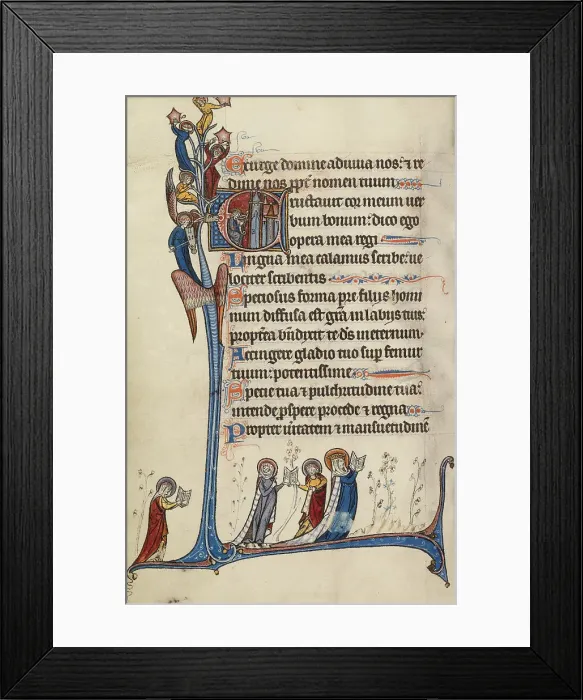 Exurge domine adiuua nos: ⁊ re
dime nos ppt̄ nomen tuum
Eructauit cor meum uer
bum bonum: dico ego
opera mea regi
Lingua mea calamus scribe: ue
lociter scribentis
Speciosus forma pre filijs homi
num diffusa est grā in labijs tuis:
propterea bn̄dixit te ds̄ in eternum.
Accingere gladio tuo sup femur
tuum: potentissime
Specie tua ⁊ pulchritudine tua:
intende pspere procede ⁊ regna
Propter uītatem ⁊ mansuetudinē